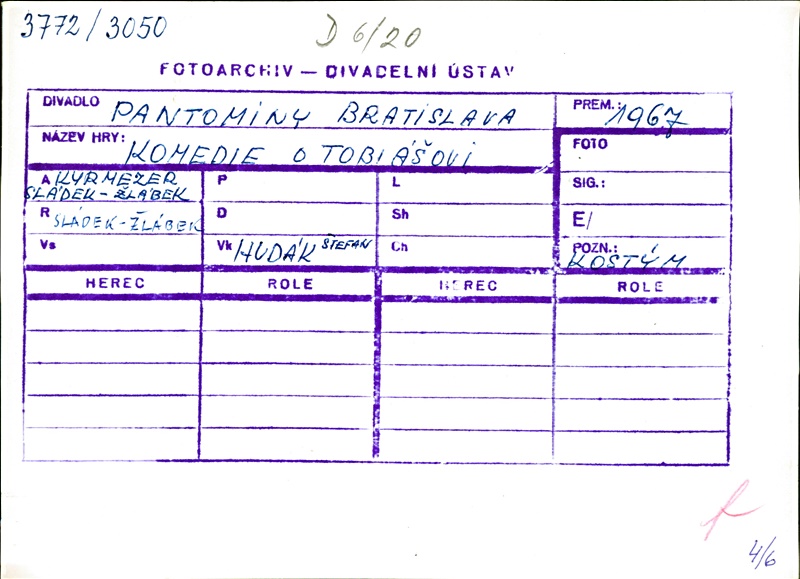 3772/3050
D 6/20
FOTOARCHIV — DIVADELNÍ ÚSTAV
DIVADLO PANTOMÍNY BRATISLAVA
PREM.: 1967
NÁZEV HRY: KOMEDIE O TOBIÁŠOVI
FOTO
A KYRMEZER
SLÁDEK-ŽLÁBEK
P
L
SIG.:
R SLÁDEK-ŽLÁBEK
D
Sh
E/
Vs
Vk HUDÁK ŠTEFAN
Ch
POZN.:
KOSTÝM
HEREC ROLE HEREC ROLE
4/6